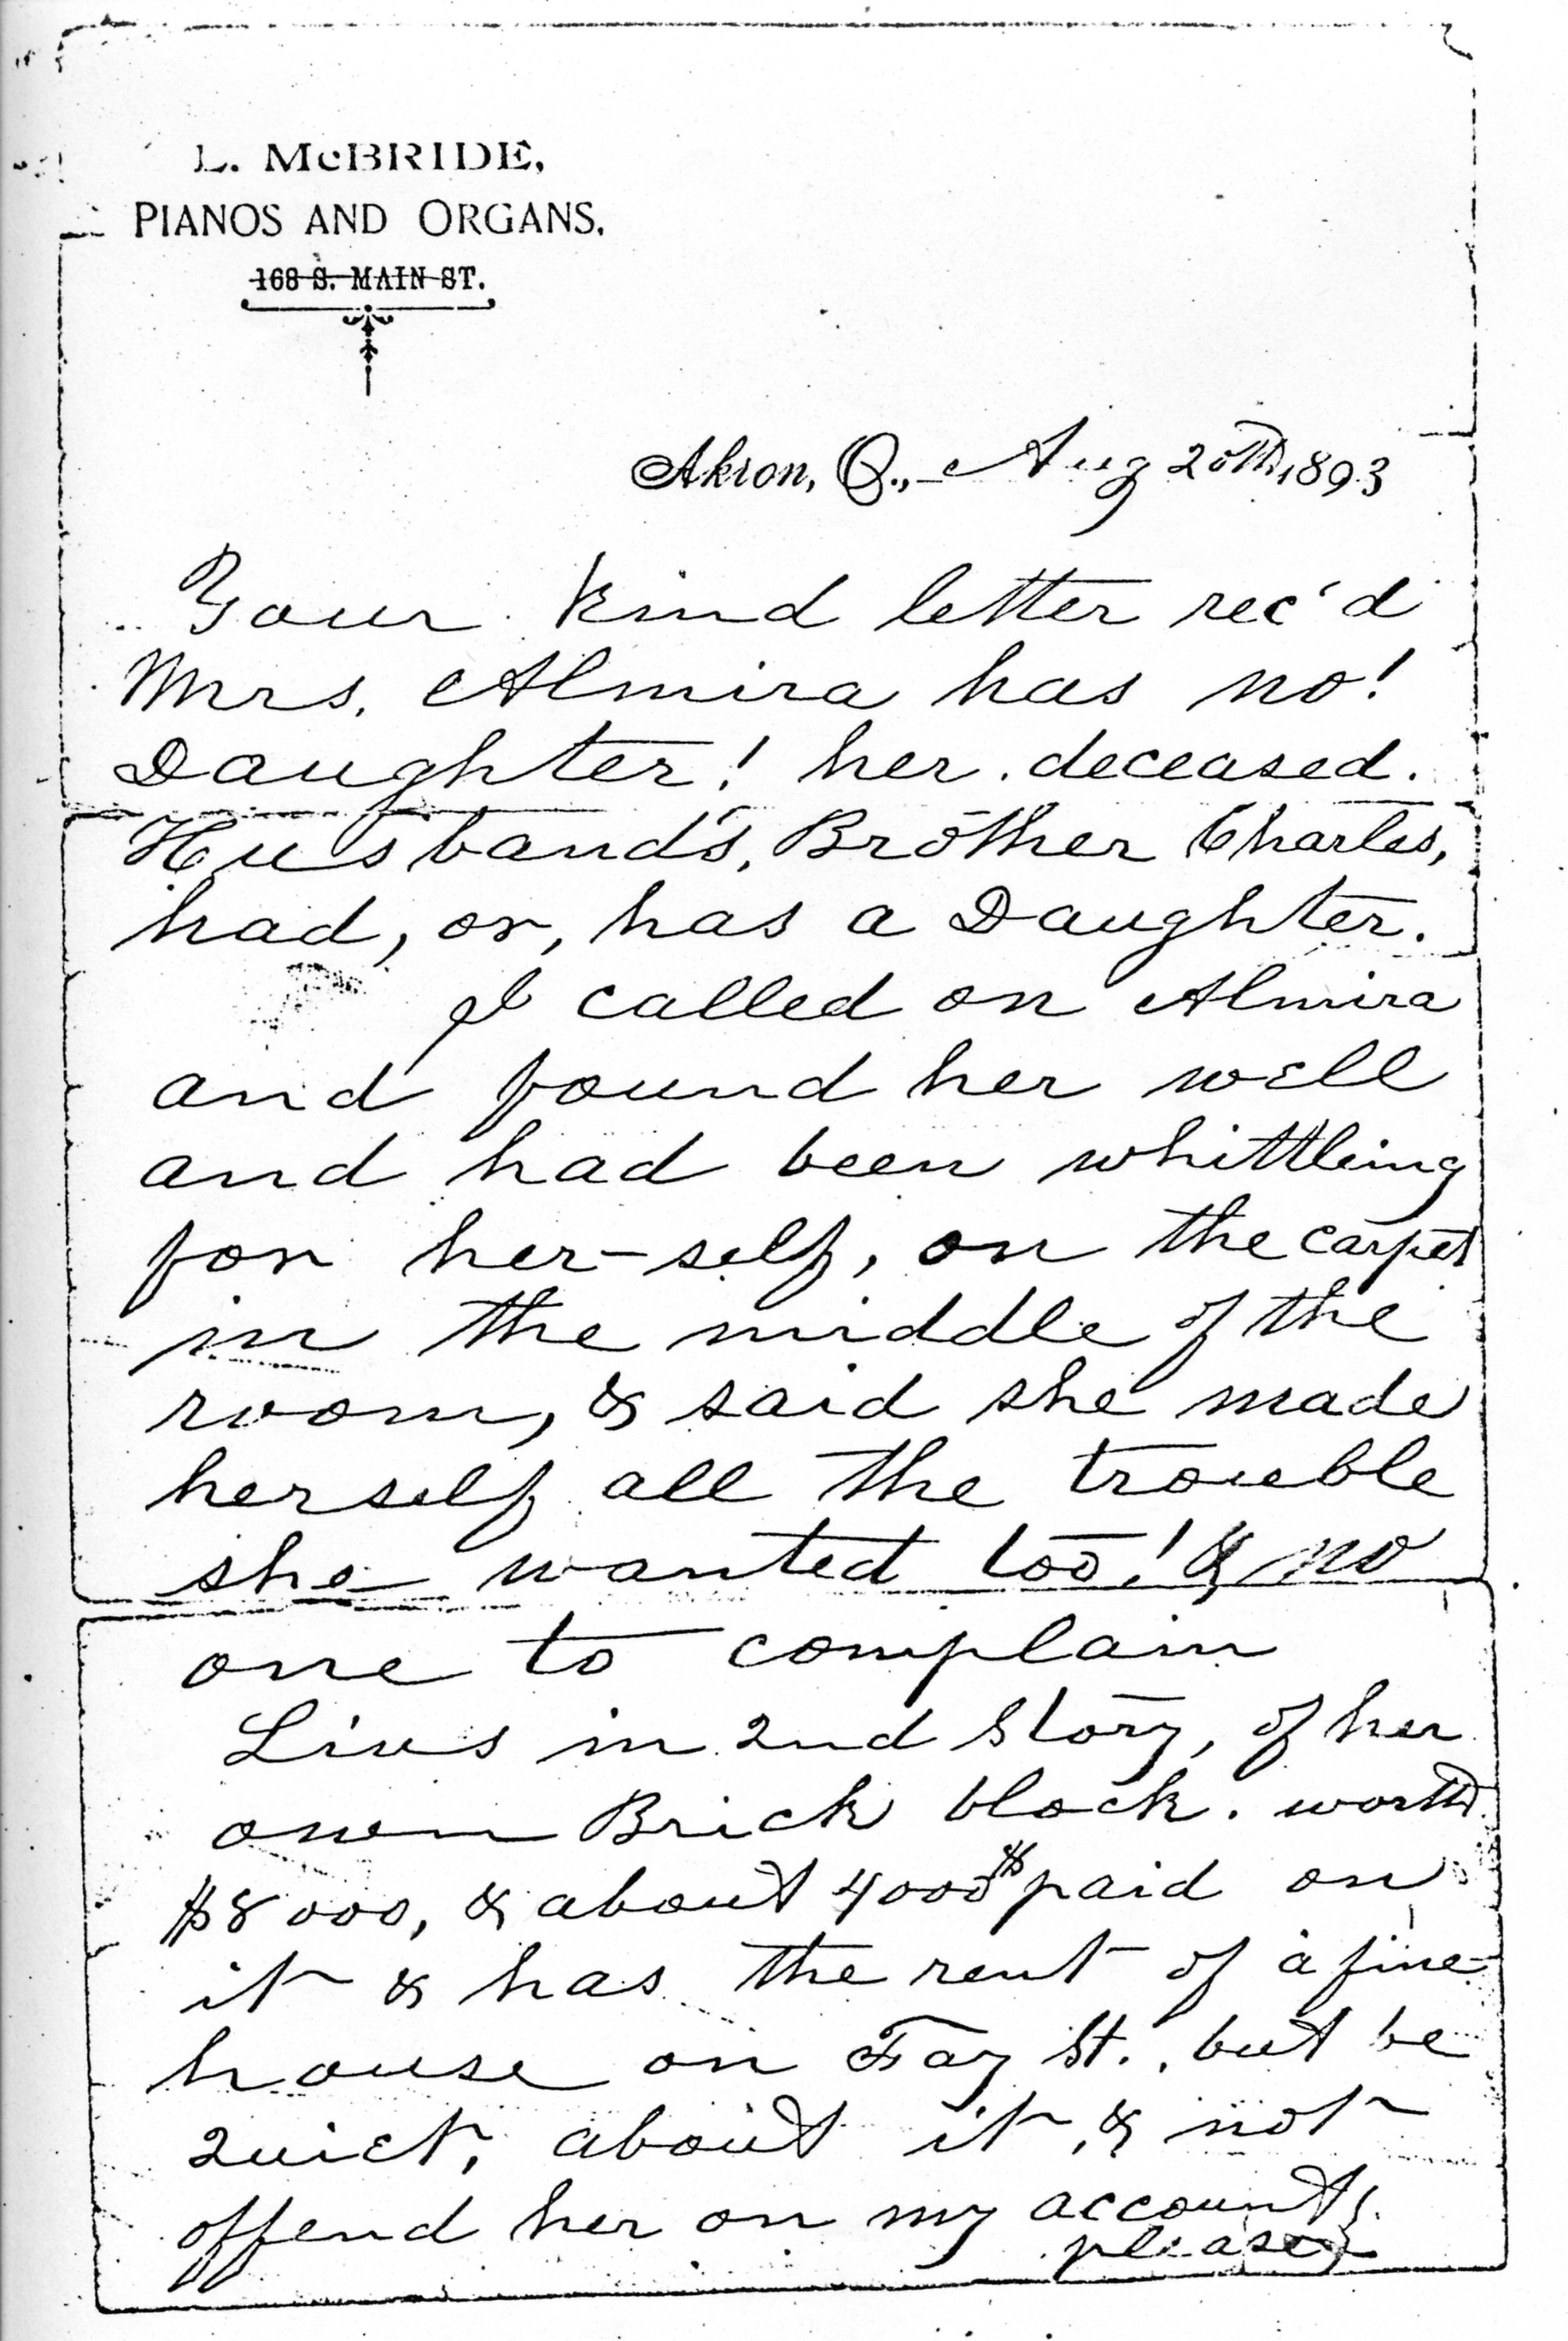 L. McBRIDE,
PIANOS AND ORGANS,
168 S. MAIN ST.
Akron, O., Aug 20th, 1893
Your kind letter rec'd
Mrs. Almira has no!
Daughter! her deceased.
Husband's, Brother Charles,
had, or, has a Daughter.
I called on Almira
and found her well
and had been whittling
for her-self, on the carpet
in the middle of the
room, & said she made
herself all the trouble
she wanted too! & no
one to complain
Livs in 2nd Story, of her
own Brick block. worth
$8000, & about 4000$ paid on
it & has the rent of a fine
house on Fay St., but be
Quiet, about it, & not
offend her on my account,
please